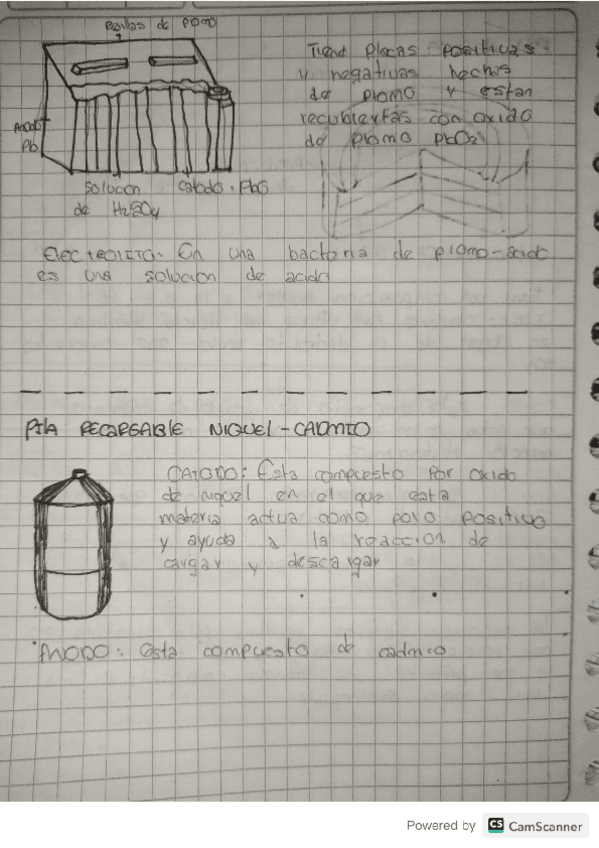 Rejillas de plomo
Tiene Placas positivas
y negativas hechis
de plomo y estan
recubiertas con oxido
de plomo PbO2
Anodo
Pb
Solucion
de H2SO4
Catodo. PbO
Electrolito. En una bacteria de plomo-acido
es una solucion de acido
PILA RECARGABLE NIQUEL-CADMIO
CATODO: Esta compuesto por oxido
de niquel en el que esta
materia actua como polo positivo
y ayuda a la reaccion de
cargar y descargar
ANODO: esta compuesto de cadmio
Powered by CS CamScanner